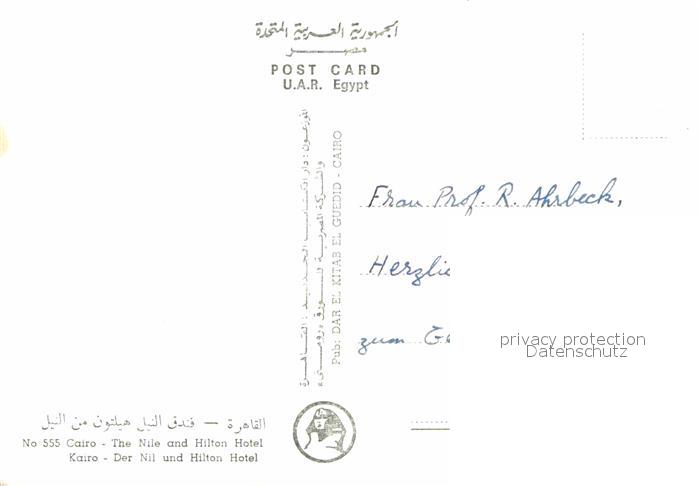 الجمهورية العربية المتحدة
مصر
POST CARD
U.A.R. Egypt
الموزعون : دار الكتاب الجديد : القاهرة
والشركة المصرية
Pub: DAR EL KITAB EL GUEDID - CAIRO
Frau Prof. R. Ahrbeck,
Herzli
zum
privacy protection
Datenschutz
القاهرة — فندق النيل هيلتون من النيل
No 555 Cairo - The Nile and Hilton Hotel
Kairo - Der Nil und Hilton Hotel